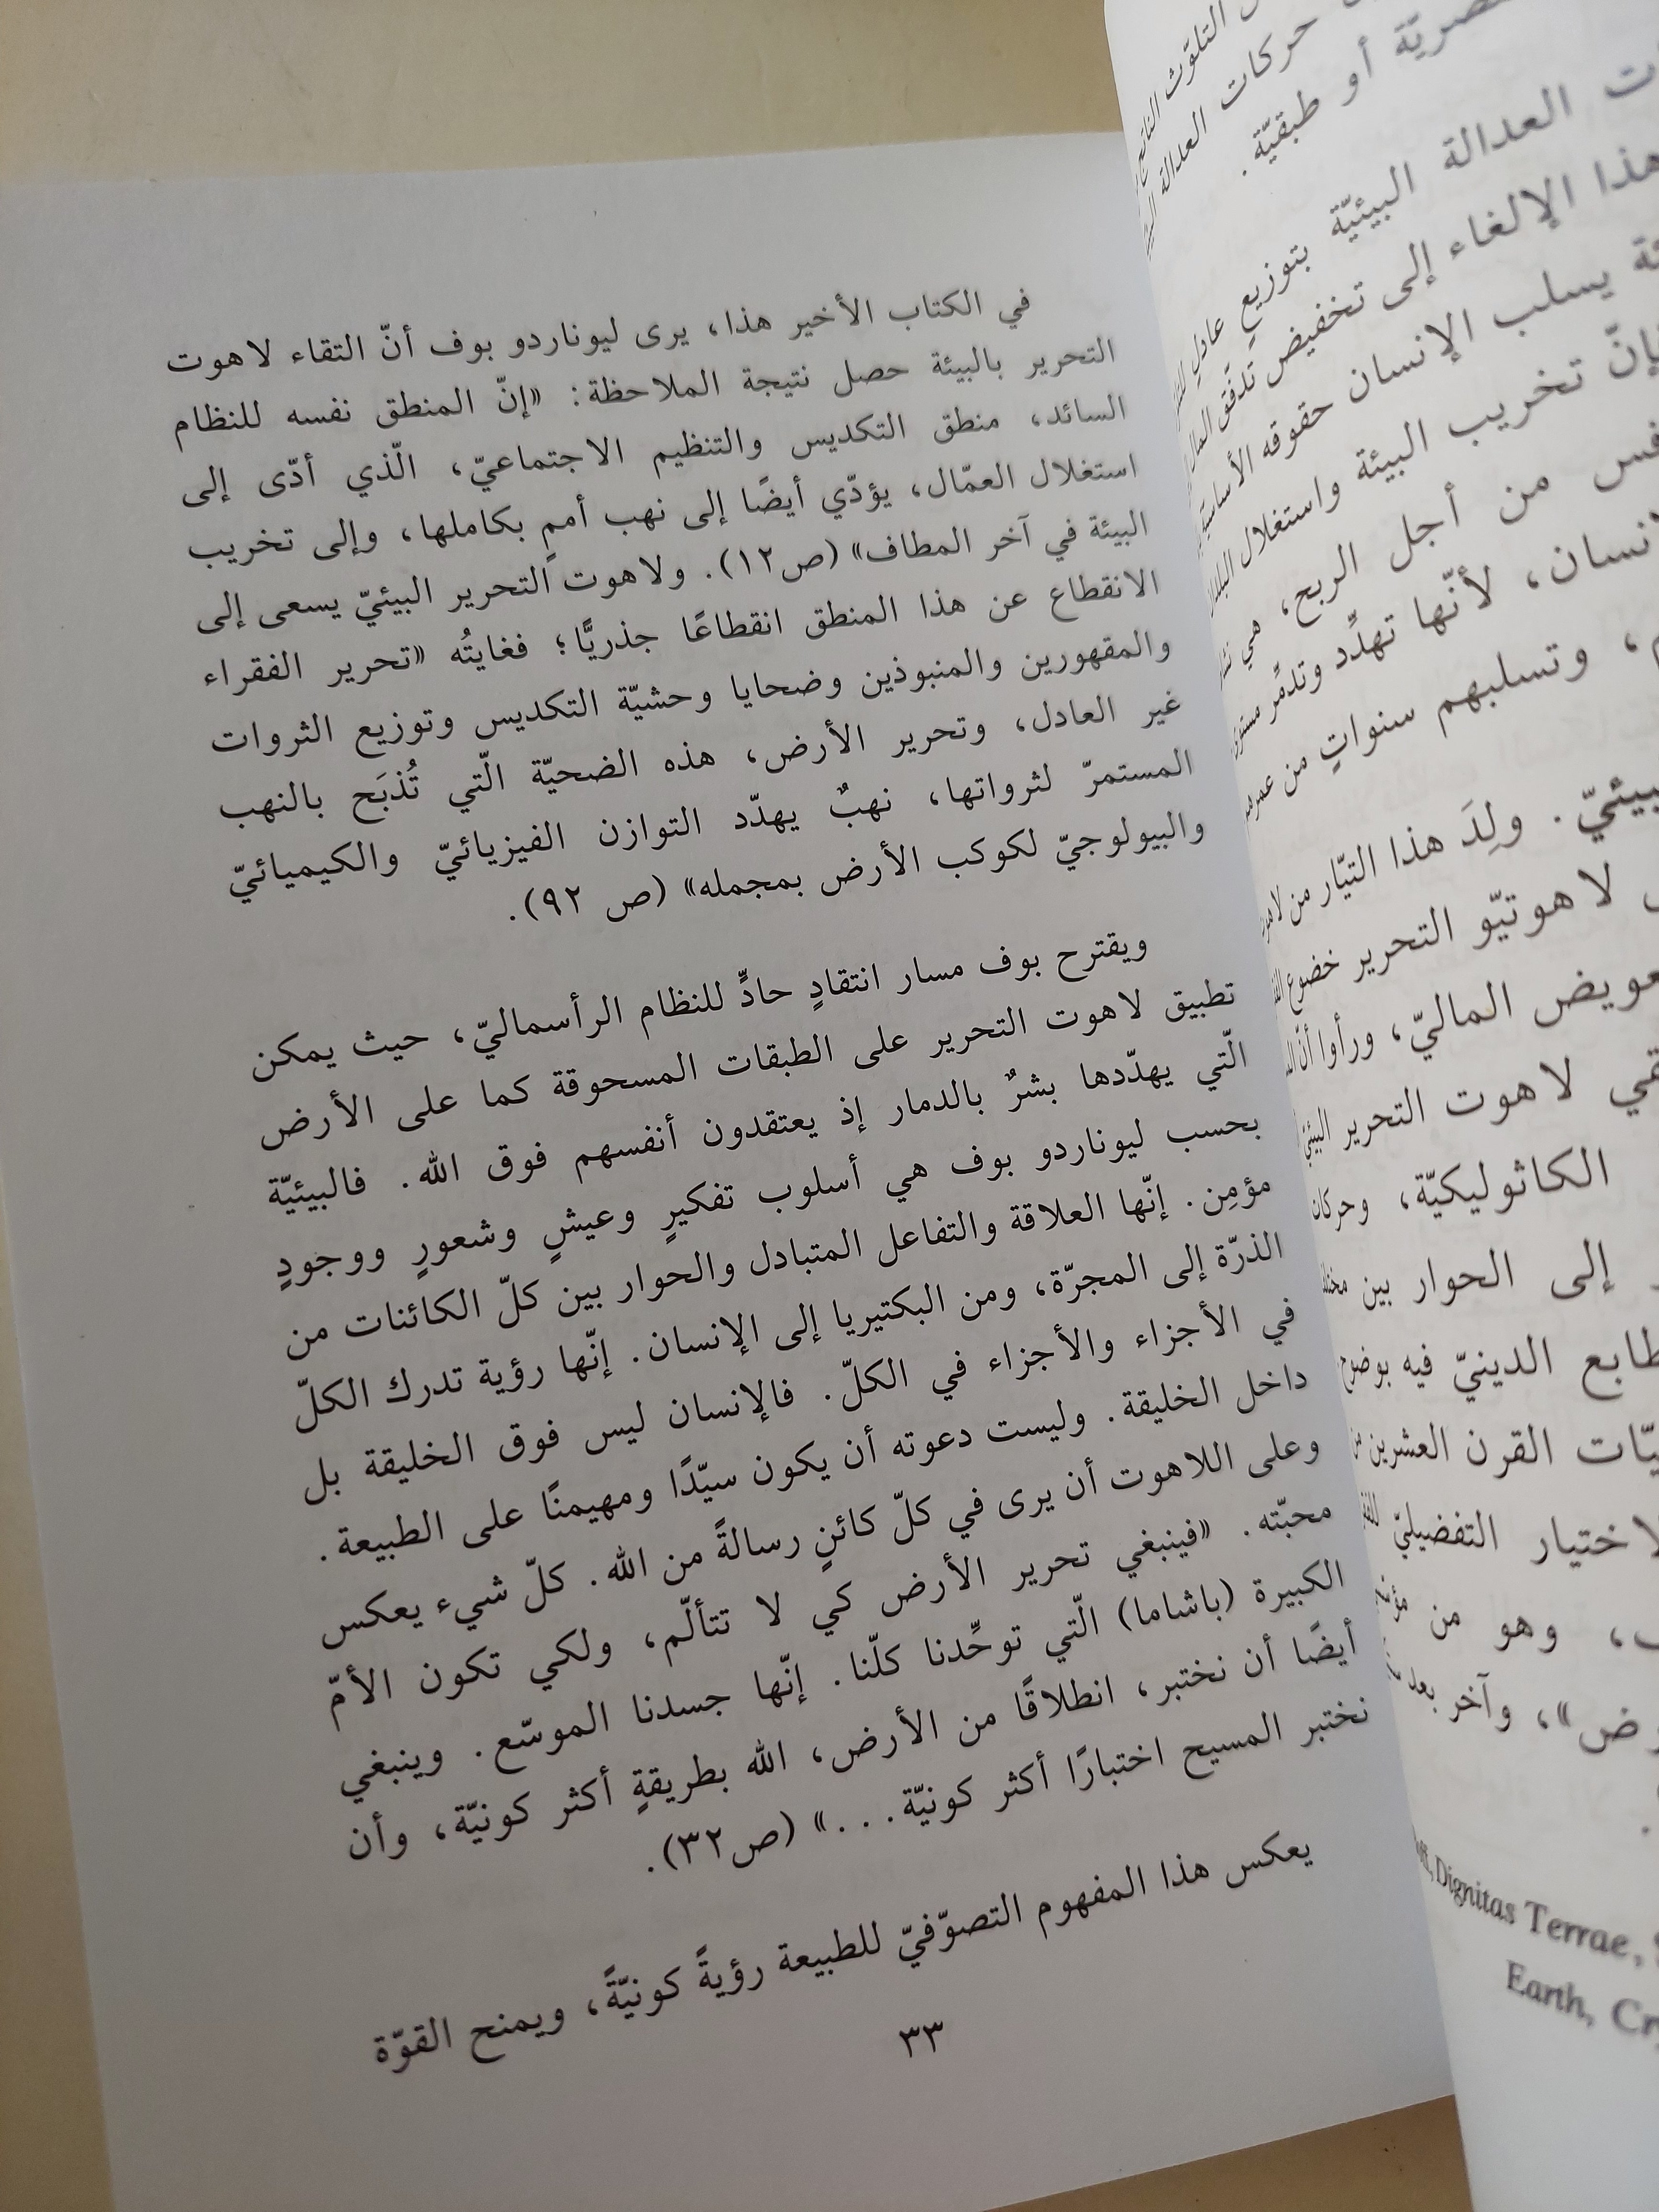 التلوّث الناتج
حركات العدالة
أو طبقيّة.
العدالة البيئيّة بتوزيعٍ عادلٍ
هذا الإلغاء إلى تخفيض تدفّق المال
يسلب الإنسان حقوقه الأساسيّة
تخريب البيئة واستغلال
من أجل الربح، هي
لأنّها تهدِّد وتدمِّر
وتسلبهم سنواتٍ من
ولِدَ هذا التيّار من
لاهوتيّو التحرير خضوع
الماليّ، ورأوا أنّ
لاهوت التحرير البيئيّ
الكاثوليكيّة، وحركات
إلى الحوار بين
الدينيّ فيه بوضوح
القرن العشرين من
التفضيليّ
وهو من
وآخر بعد
Dignitas Terrae,
Earth,
في الكتاب الأخير هذا، يرى ليوناردو بوف أنّ التقاء لاهوت
التحرير بالبيئة حصل نتيجة الملاحظة: «إنّ المنطق نفسه للنظام
السائد، منطق التكديس والتنظيم الاجتماعيّ، الّذي أدّى إلى
استغلال العمّال، يؤدّي أيضًا إلى نهب أممٍ بكاملها، وإلى تخريب
البيئة في آخر المطاف» (ص١٢). ولاهوت التحرير البيئيّ يسعى إلى
الانقطاع عن هذا المنطق انقطاعًا جذريًّا؛ فغايتُه «تحرير الفقراء
والمقهورين والمنبوذين وضحايا وحشيّة التكديس وتوزيع الثروات
غير العادل، وتحرير الأرض، هذه الضحيّة الّتي تُذبَح بالنهب
المستمرّ لثرواتها، نهبٌ يهدّد التوازن الفيزيائيّ والكيميائيّ
والبيولوجيّ لكوكب الأرض بمجمله» (ص ٩٢).
ويقترح بوف مسار انتقادٍ حادٍّ للنظام الرأسماليّ، حيث يمكن
تطبيق لاهوت التحرير على الطبقات المسحوقة كما على الأرض
الّتي يهدّدها بشرٌ بالدمار إذ يعتقدون أنفسهم فوق الله. فالبيئيّة
بحسب ليوناردو بوف هي أسلوب تفكيرٍ وعيشٍ وشعورٍ ووجودٍ
مؤمِن. إنّها العلاقة والتفاعل المتبادل والحوار بين كلّ الكائنات من
الذرّة إلى المجرّة، ومن البكتيريا إلى الإنسان. إنّها رؤية تدرك الكلّ
في الأجزاء والأجزاء في الكلّ. فالإنسان ليس فوق الخليقة بل
داخل الخليقة. وليست دعوته أن يكون سيّدًا ومهيمنًا على الطبيعة.
وعلى اللاهوت أن يرى في كلّ كائنٍ رسالةً من الله. كلّ شيء يعكس
محبّته. «فينبغي تحرير الأرض كي لا تتألّم، ولكي تكون الأمّ
الكبيرة (باشاما) الّتي توحِّدنا كلّنا. إنّها جسدنا الموسّع. وينبغي
أيضًا أن نختبر، انطلاقًا من الأرض، الله بطريقةٍ أكثر كونيّة، وأن
نختبر المسيح اختبارًا أكثر كونيّة...» (ص٣٢).
يعكس هذا المفهوم التصوّفيّ للطبيعة رؤيةً كونيّةً، ويمنح القوّة
٣٣